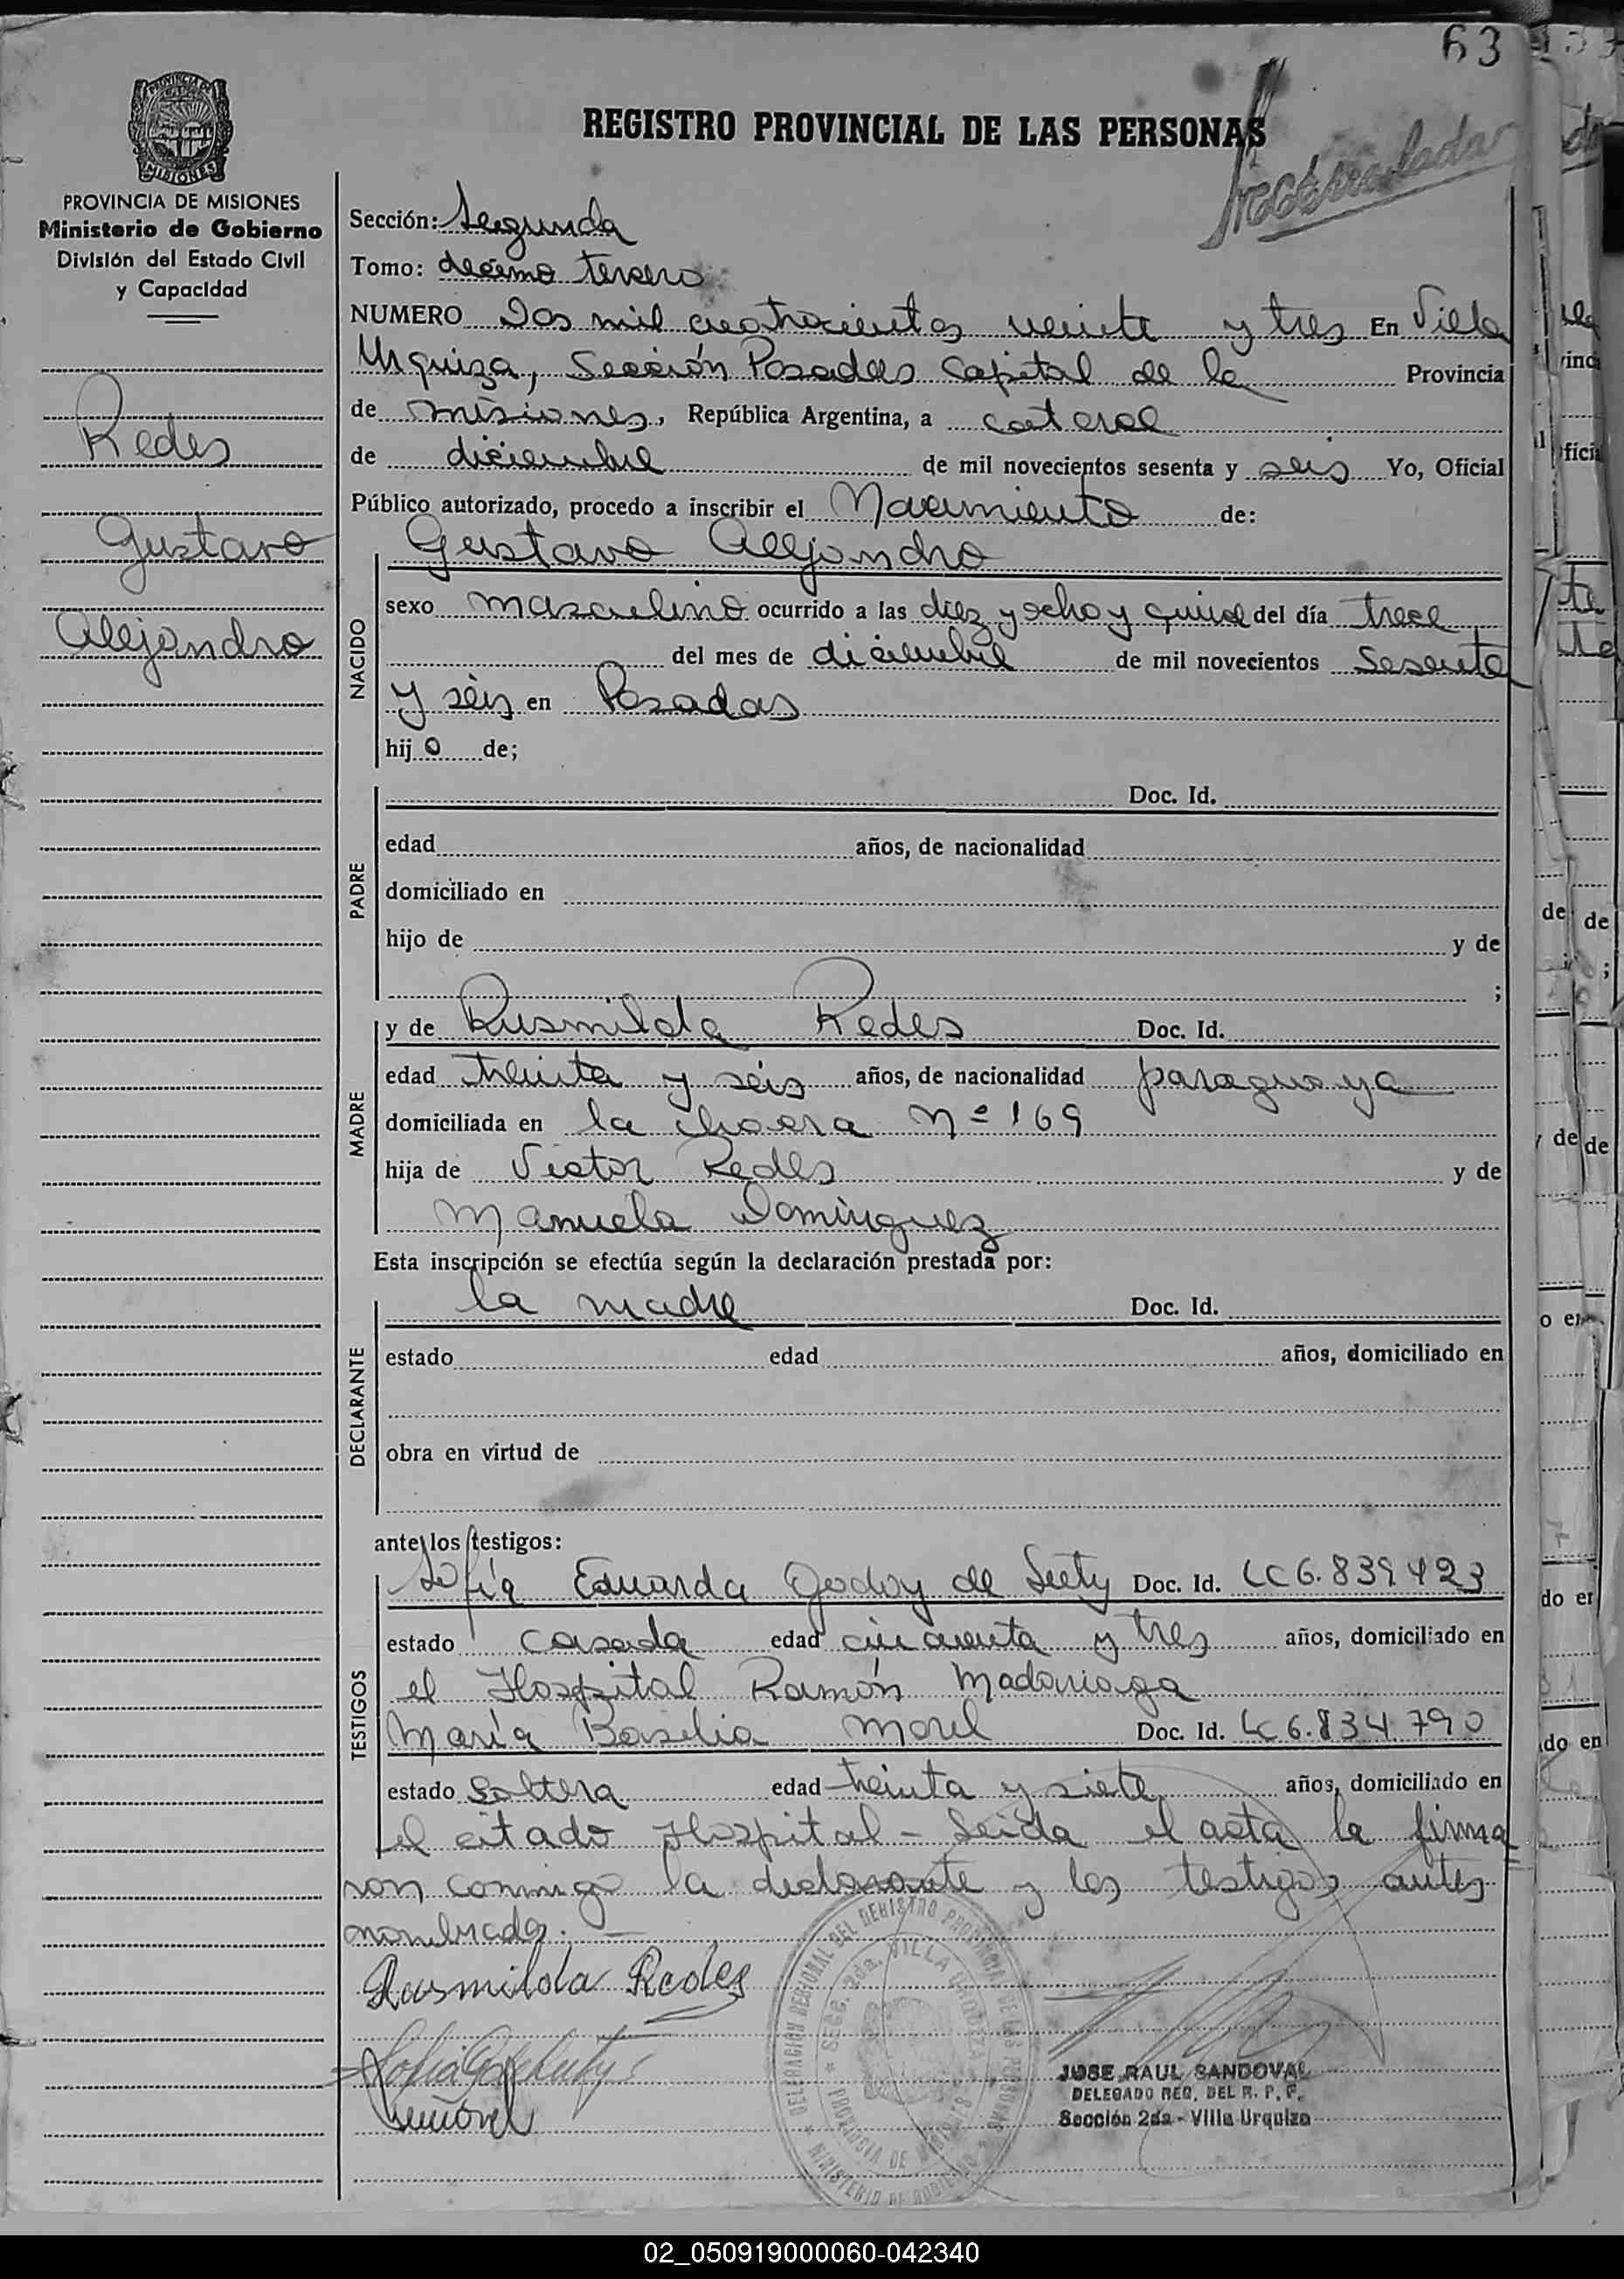 63
REGISTRO PROVINCIAL DE LAS PERSONAS
MISIONES
PROVINCIA DE MISIONES
Ministerio de Gobierno
División del Estado Civil
y Capacidad
Redes
Gustavo
Alejandro
Sección: Segunda
Tomo: décimo tercero
NUMERO Dos mil cuatrocientos veinte y tres En Villa
Urquiza, Sección Posadas Capital de la Provincia
de misiones, República Argentina, a catorce
de diciembre de mil novecientos sesenta y seis Yo, Oficial
Público autorizado, procedo a inscribir el Nacimiento de:
Gustavo Alejandro
NACIDO
sexo masculino ocurrido a las diez y ocho y quince del día trece
del mes de diciembre de mil novecientos sesenta
y séis en Posadas
hijo de;
PADRE
Doc. Id.
edad años, de nacionalidad
domiciliado en
hijo de y de
;
MADRE
y de Rusmilda Redes Doc. Id.
edad treinta y séis años, de nacionalidad paraguaya
domiciliada en la chacra nº 169
hija de Victor Redes y de
Manuela Dominguez
Esta inscripción se efectúa según la declaración prestada por:
DECLARANTE
la madre Doc. Id.
estado edad años, domiciliado en
obra en virtud de
ante los testigos:
TESTIGOS
Sofía Eduarda Godoy de Doc. Id. LC 6.839423
estado casada edad cincuenta y tres años, domiciliado en
el Hospital Ramón Madariaga
María Basilia Morel Doc. Id. LC 6.834.790
estado soltera edad treinta y siete años, domiciliado en
el citado Hospital - Leída el acta la firma
ron conmigo la declarante y los testigos antes
nombrados. —
Rusmilda Redes
DELEGACION REGIONAL DEL REGISTRO PROVINCIAL DE LAS PERSONAS
SECC. 2da. VILLA URQUIZA
PROVINCIA DE MISIONES
MINISTERIO DE GOBIERNO
JOSE RAUL SANDOVAL
DELEGADO REG. DEL R. P. P.
Sección 2da - Villa Urquiza
02_050919000060-042340